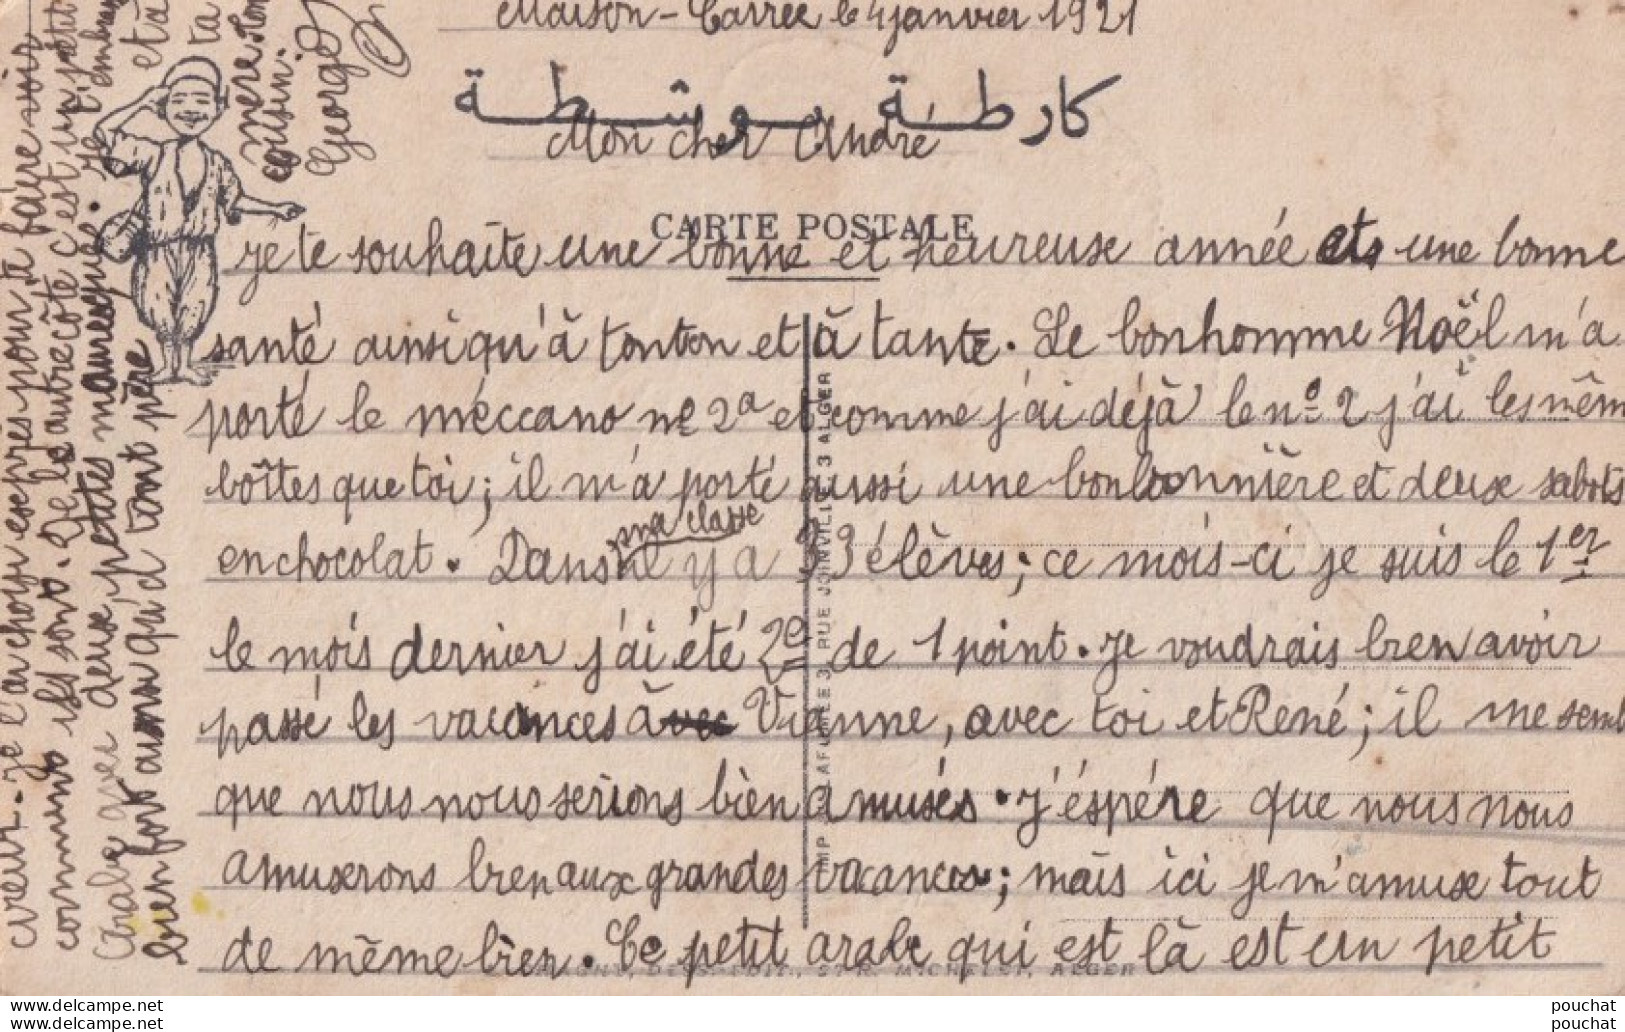 Maison-Carrée le 4 janvier 1921
كارطة بوسْطة
Mon cher André
CARTE POSTALE
Je te souhaite une bonne et heureuse année et une bonne
santé ainsi qu'à tonton et à tante. Le bonhomme Noël m'a
porté le méccano nº 2a et comme j'ai déjà le nº 2 j'ai les mêm
boîtes que toi ; il m'a porté aussi une bonbonnière et deux sabots
en chocolat. Dans ma classe il y a 33 élèves ; ce mois-ci je suis le 1er
le mois dernier j'ai été 2e de 1 point. Je voudrais bien avoir
passé les vacances à Vienne, avec toi et René ; il me sembl
que nous nous serions bien amusés. J'éspére que nous nous
amuserons bien aux grandes vacances ; mais ici je m'amuse tout
de même bien. Ce petit arabe qui est là est un petit
cireur. Je l'ai choisi exprès pour te faire voir
comment ils sont. De l'autre côté c'est un petit
Arabe avec deux petites mauresques. Je t'embrasse
bien fort ainsi qu'à tont père
et à ta
mere ton
cousin.
Georges
IMP. LAFUMÉE 3, RUE JOINVILLE 3 ALGER
ALGER
pouchat
pouchat